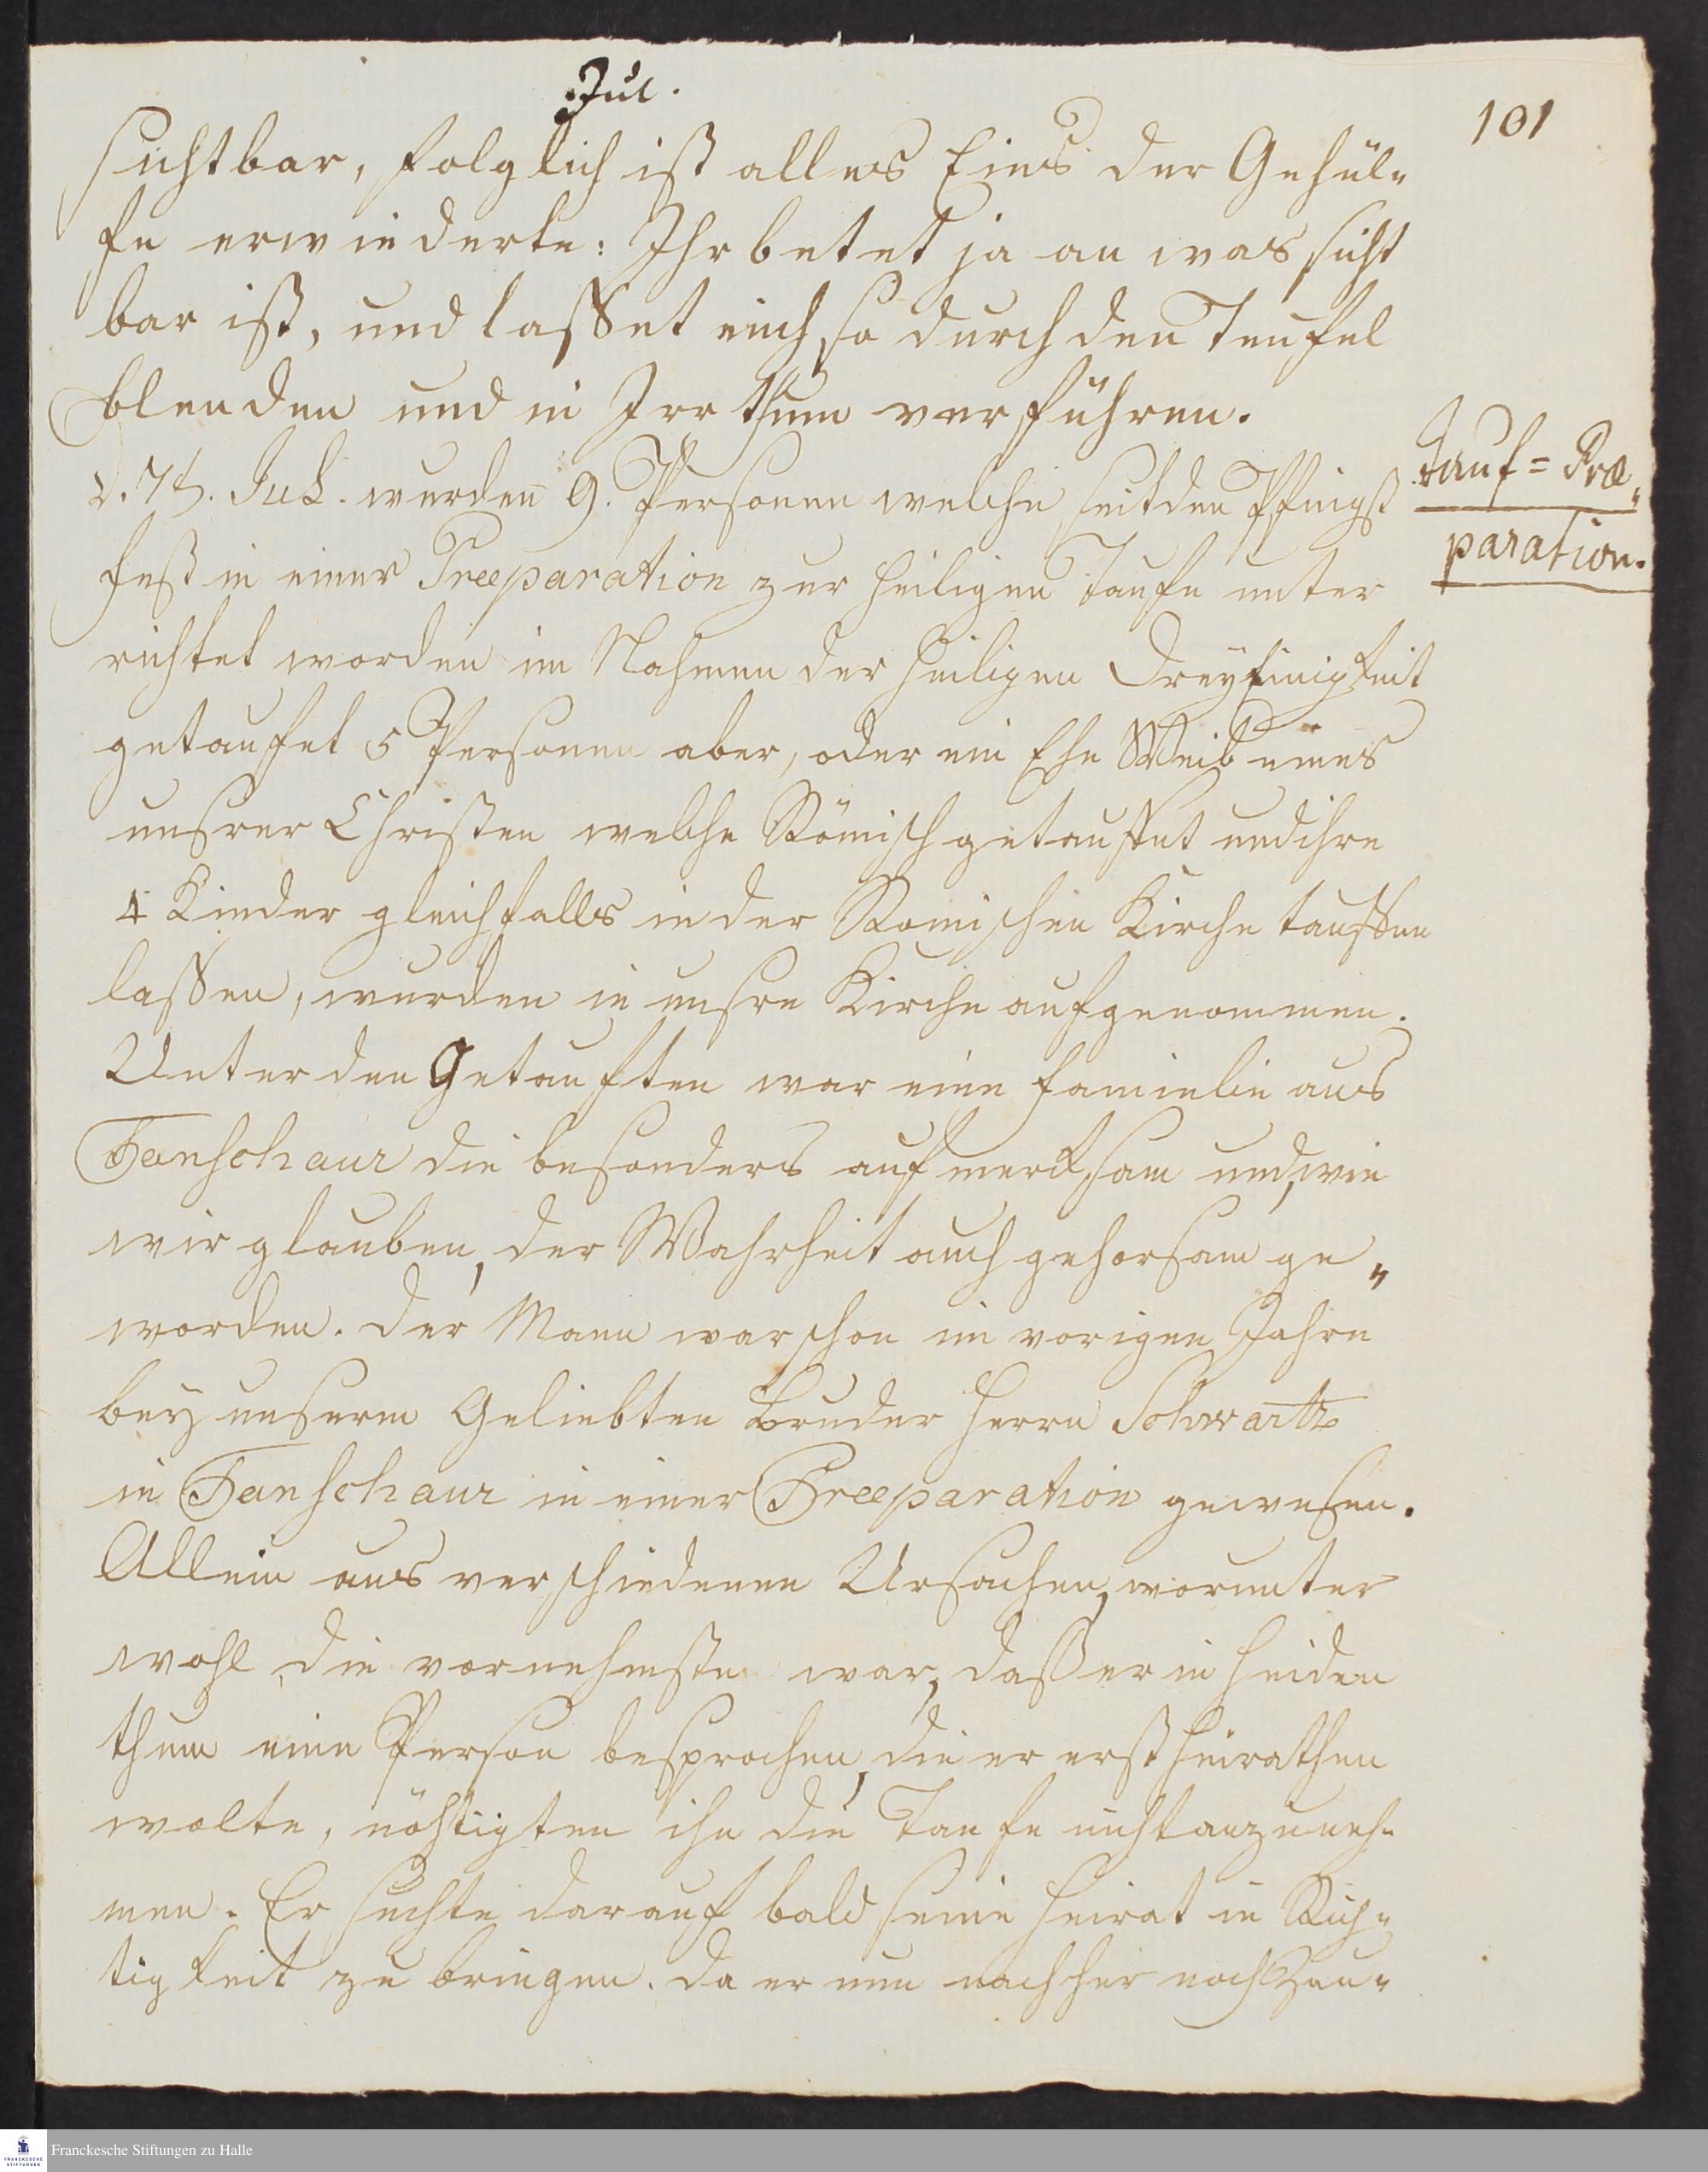 Jul.
101
sichtbar, folglich ist alles Eins der Gehül„
fe erwiederte: Ihr betet ja an was sicht
bar ist, und lasset euch so durch den Teufel
blenden und in Irrthum verführen.
d. 7t. Jul. wurden 9. Personen welche seit den Pfingst
Tauf=Præ„
paration.
fest in einer Præparation zur heiligen Taufe unter
richtet worden im Nahmen der heiligen Dreyeinigkeit
getaufet 5 Personen aber, oder ein Ehe Weib eines
unsrer Christen welche Römisch getauffet und ihre
4 Kinder gleichfalls in der Romischen Kirche tauffen
lassen, wurden in unsre Kirche aufgenommen.
Unter den Getauften war eine Famielie aus
Tanschaur die besonders aufmerksam und, wie
wir glauben, der Wahrheit auch gehorsam ge„
worden. Der Mann war schon im vorigen Jahre
bey unserm Geliebten Bruder Herrn Schwartz
in Tanschaur in einer Præparation gewesen.
Allein aus verschiedenen Ursachen, worunter
wohl die vornehmste war, daß er in Heiden
thum eine Person besprochen, die er erst heirathen
wolte, nöhtigten ihn die Taufe nicht anzuneh„
men. Er suchte darauf bald seine Heirat in Rich„
tigkeit zu bringen. Da er nun nachher noch
Franckesche Stiftungen zu Halle